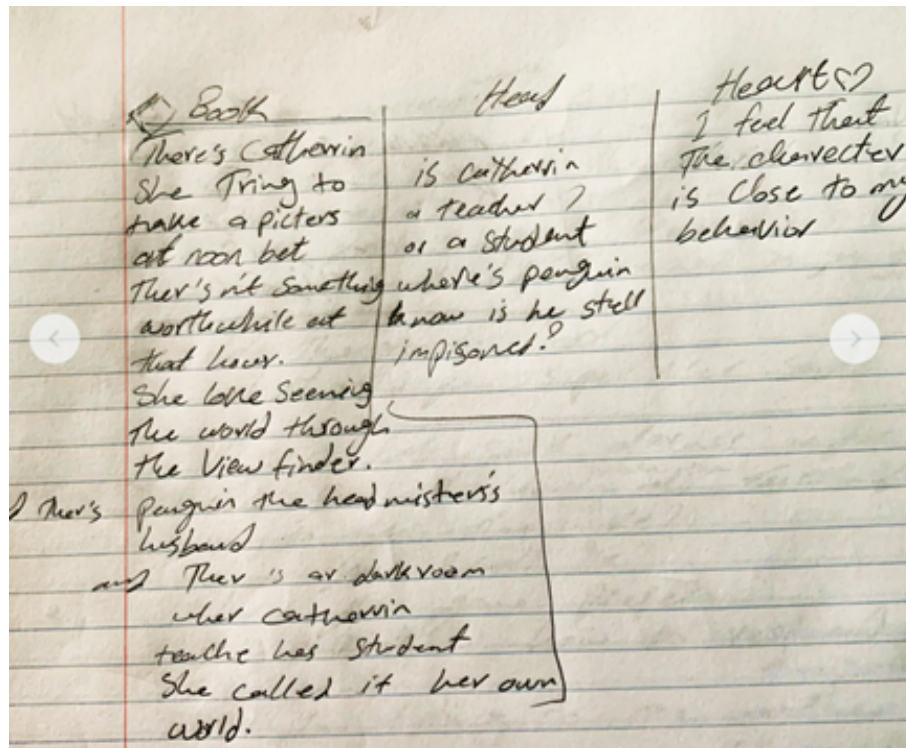 Book
There's Catherrin
She Tring to
take a picters
at noon bet
Ther's n't Something
worthwhile at
that hour.
She love Seeing
The world through
the View finder.
Ther's penguin the headmisters's
husband
and Ther 's ar darkroom
wher catherrin
teache her student
She called it her own
world.
Head
is catherrin
a teacher ?
or a student
where's penguin
know is he still
impisoned?
Heart
I feel that
The charecter
is Close to my
behavior